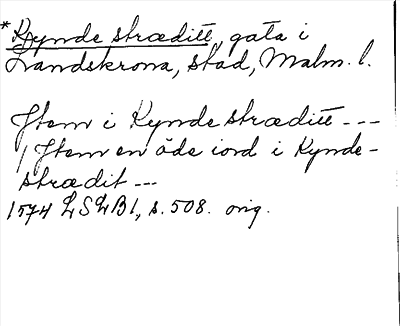 *Kynde stræditt, gata i
Landskrona, stad, Malm. l.
Jtem i Kynde stræditt ---
/ Jtem en öde iord i Kynde-
strædit ---
1574 LSLB1, s. 508. orig.